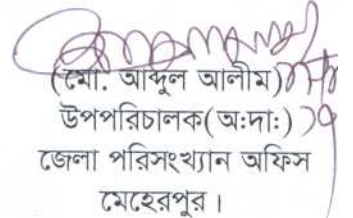 (মো. আব্দুল আলীম)
উপপরিচালক(অ:দা:)
জেলা পরিসংখ্যান অফিস
মেহেরপুর।